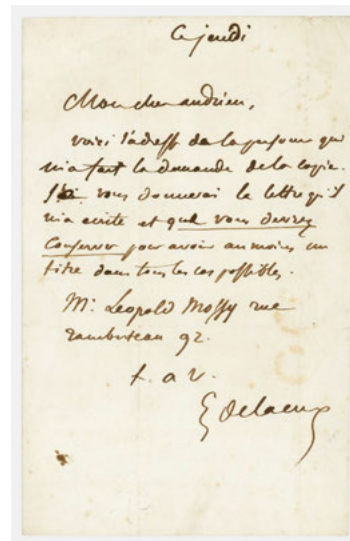 Ce jeudi
Mon cher andrieu,
voici l'adresse de la personne qui
m'a fait la demande de la copie.
Je vous donnerai la lettre qu'il
m'a ecrite et que vous devrez
conserver pour avoir au moins un
titre dans tous les cas possibles.
Mr. Leopold Mossy rue
Rambuteau 92.
t. a v.
E Delacroix